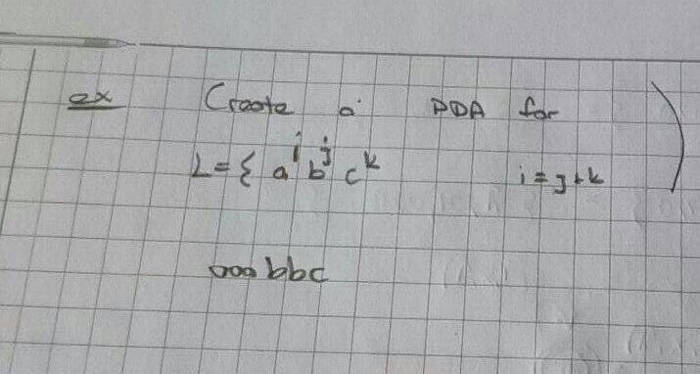 ex Create a PDA for
L = { aⁱ bʲ cᵏ i = j + k
aaa bbc